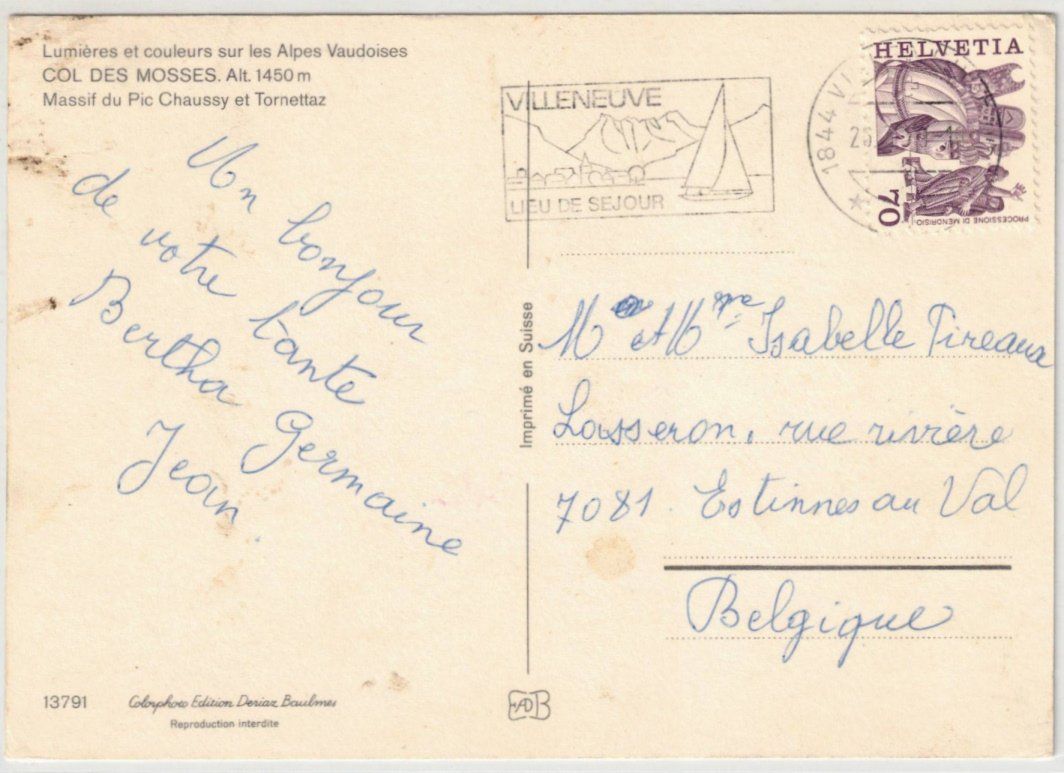 Lumières et couleurs sur les Alpes Vaudoises
COL DES MOSSES. Alt. 1450 m
Massif du Pic Chaussy et Tornettaz
Un bonjour
de votre tante
Bertha Germaine
Jean.
13791
Colorphoto Edition Deriaz Baulmes
Reproduction interdite
Imprimé en Suisse
VILLENEUVE
LIEU DE SEJOUR
1844 VI
HELVETIA
70
PROCESSIONE DI MENDRISIO
M et Mme Isabelle Tireana
Lasseron, rue rivière
7081. Estinnes au Val
Belgique